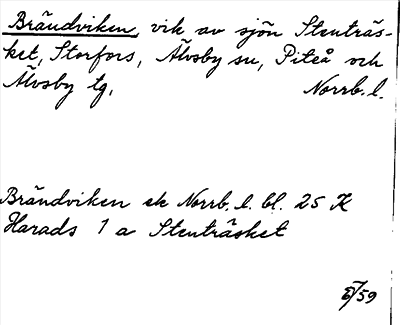 Brändviken, vik av sjön Stenträs-
ket, Storfors, Älvsby sn, Piteå och
Älvsby tg, Norrb. l.
Brändviken ek Norrb. l. bl. 25 K
Harads 1 a Stenträsket
59